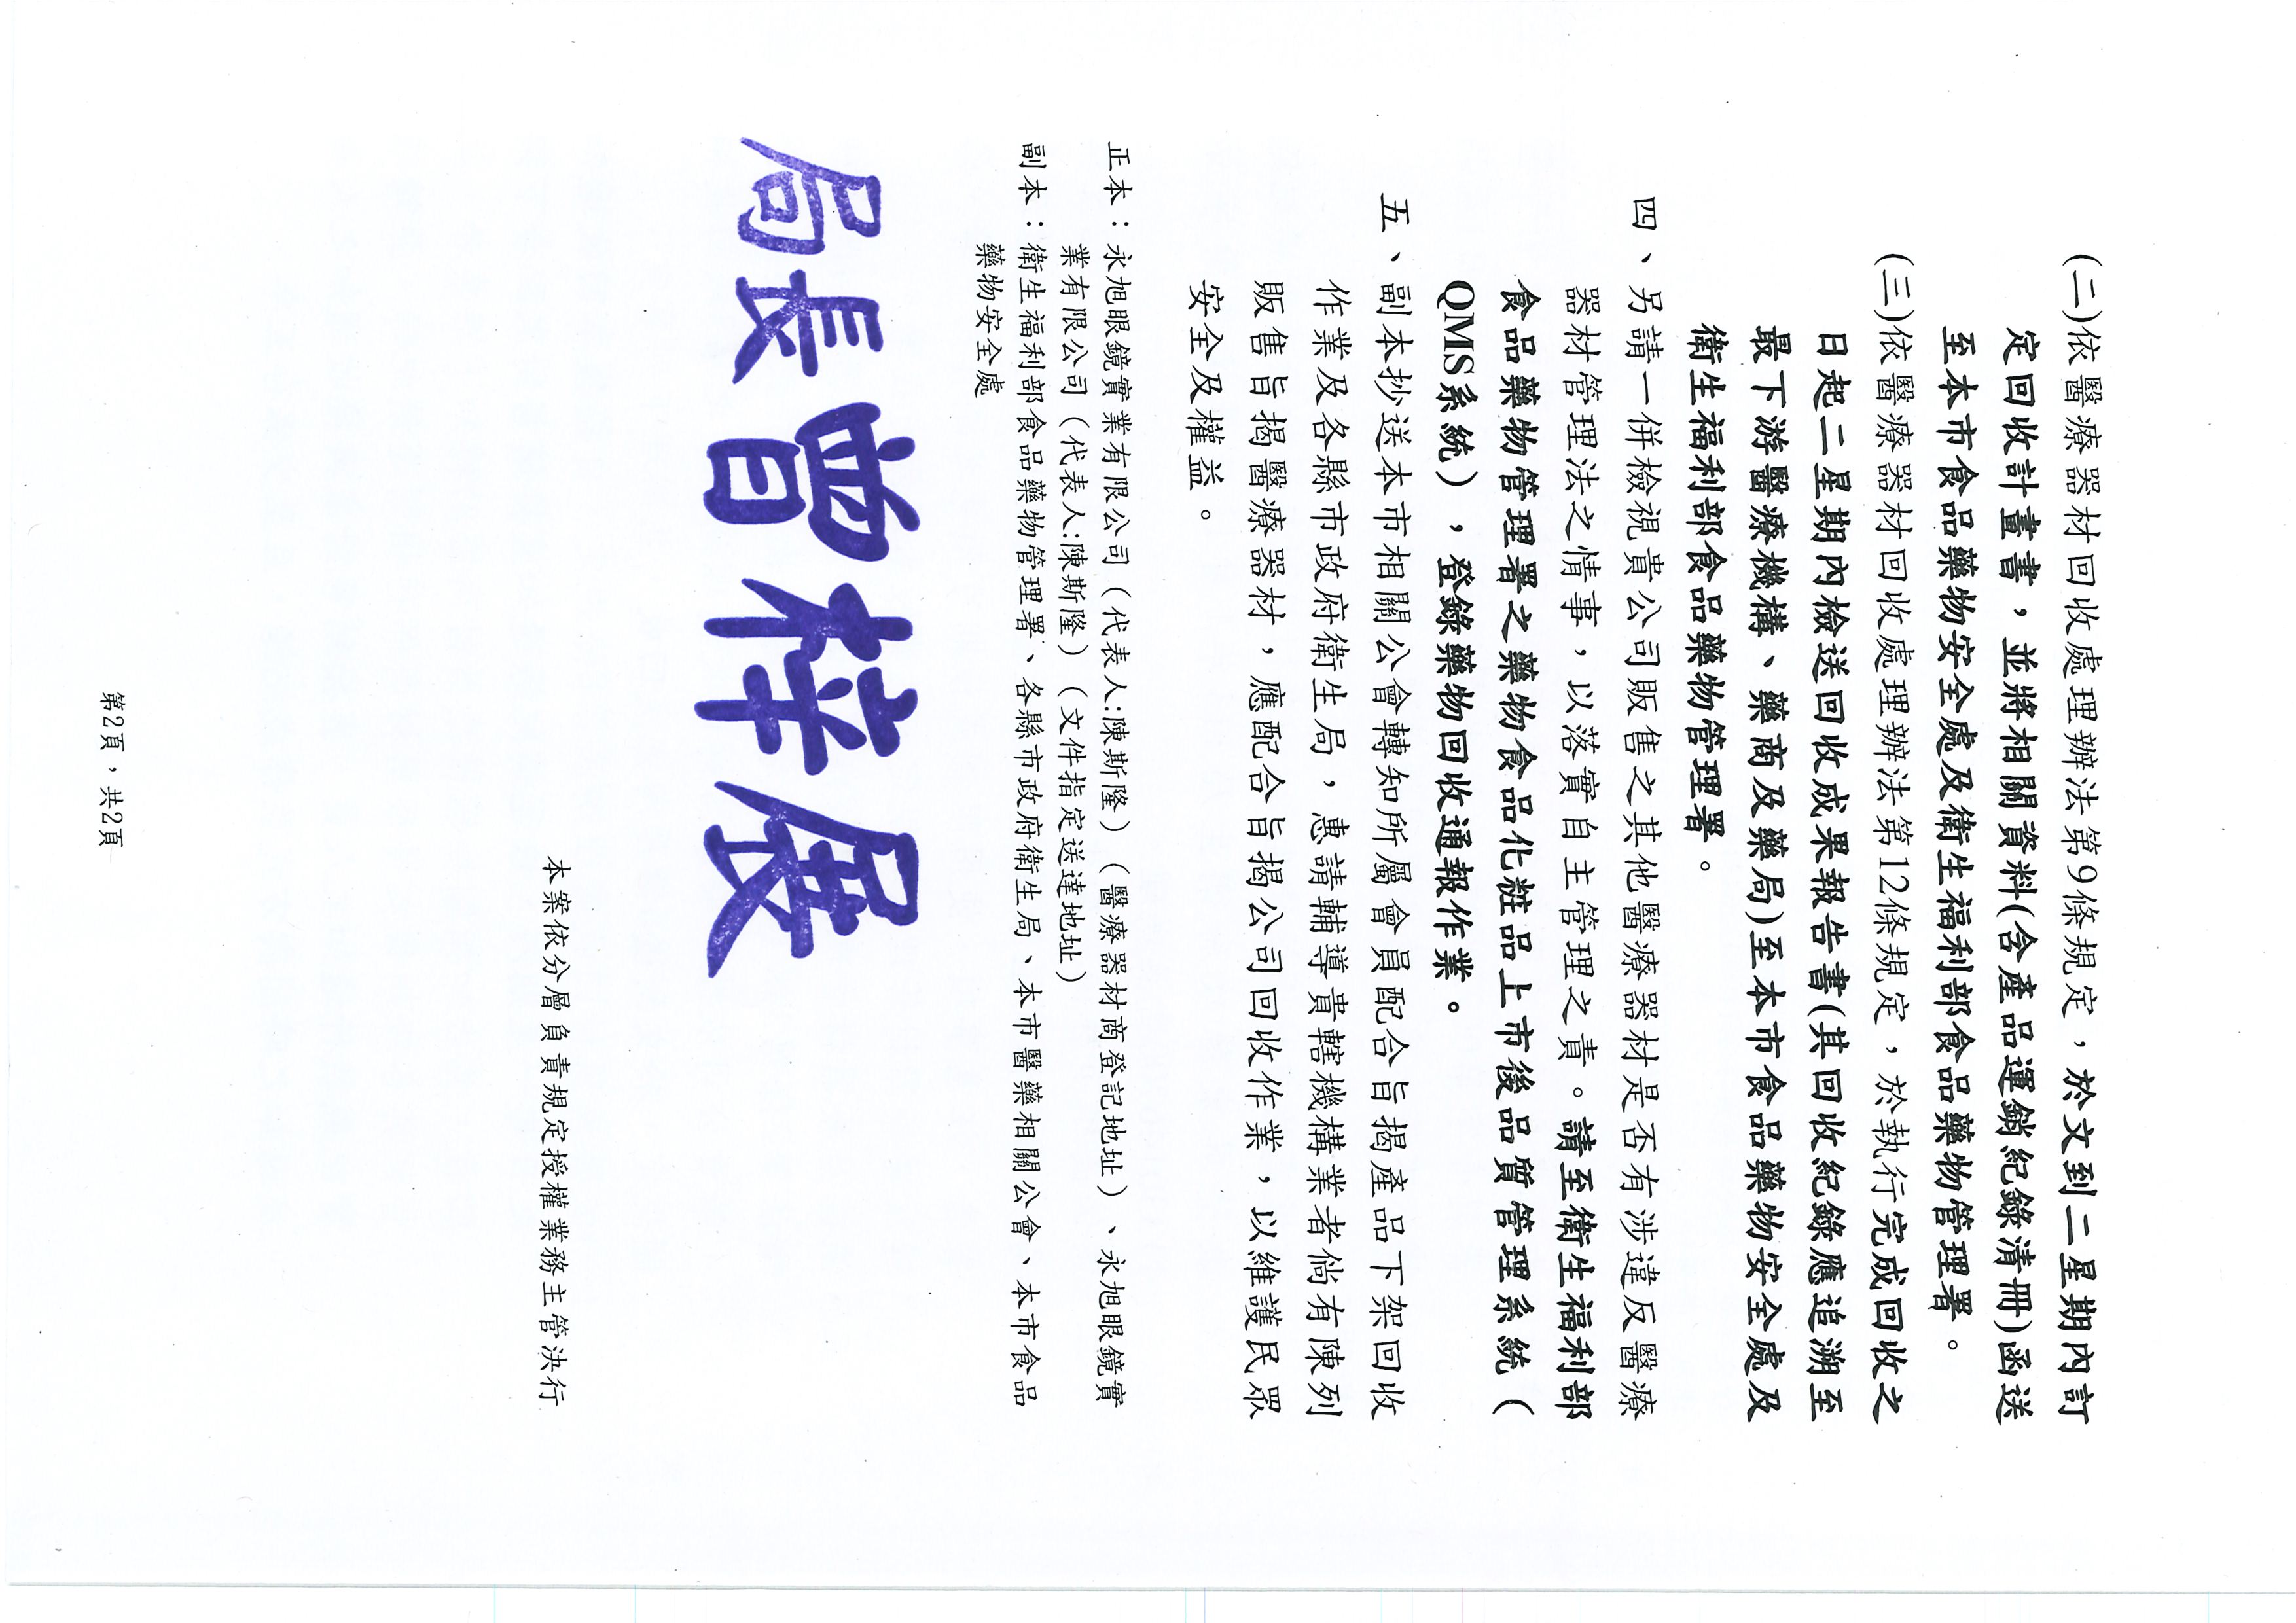 (二)依醫療器材回收處理辦法第9條規定，於文到二星期內訂
定回收計畫書，並將相關資料(含產品運銷紀錄清冊)函送
至本市食品藥物安全處及衛生福利部食品藥物管理署。
(三)依醫療器材回收處理辦法第12條規定，於執行完成回收之
日起二星期內檢送回收成果報告書(其回收紀錄應追溯至
最下游醫療機構、藥商及藥局)至本市食品藥物安全處及
衛生福利部食品藥物管理署。
四、另請一併檢視貴公司販售之其他醫療器材是否有涉違反醫療
器材管理法之情事，以落實自主管理之責。請至衛生福利部
食品藥物管理署之藥物食品化粧品上市後品質管理系統（
QMS系統），登錄藥物回收通報作業。
五、副本抄送本市相關公會轉知所屬會員配合旨揭產品下架回收
作業及各縣市政府衛生局，惠請輔導貴轄機構業者倘有陳列
販售旨揭醫療器材，應配合旨揭公司回收作業，以維護民眾
安全及權益。
正本：永旭眼鏡實業有限公司（代表人:陳斯隆）（醫療器材商登記地址）、永旭眼鏡實
業有限公司（代表人:陳斯隆）（文件指定送達地址）
副本：衛生福利部食品藥物管理署、各縣市政府衛生局、本市醫藥相關公會、本市食品
藥物安全處
局長曾梓展
本案依分層負責規定授權業務主管決行
第2頁，共2頁